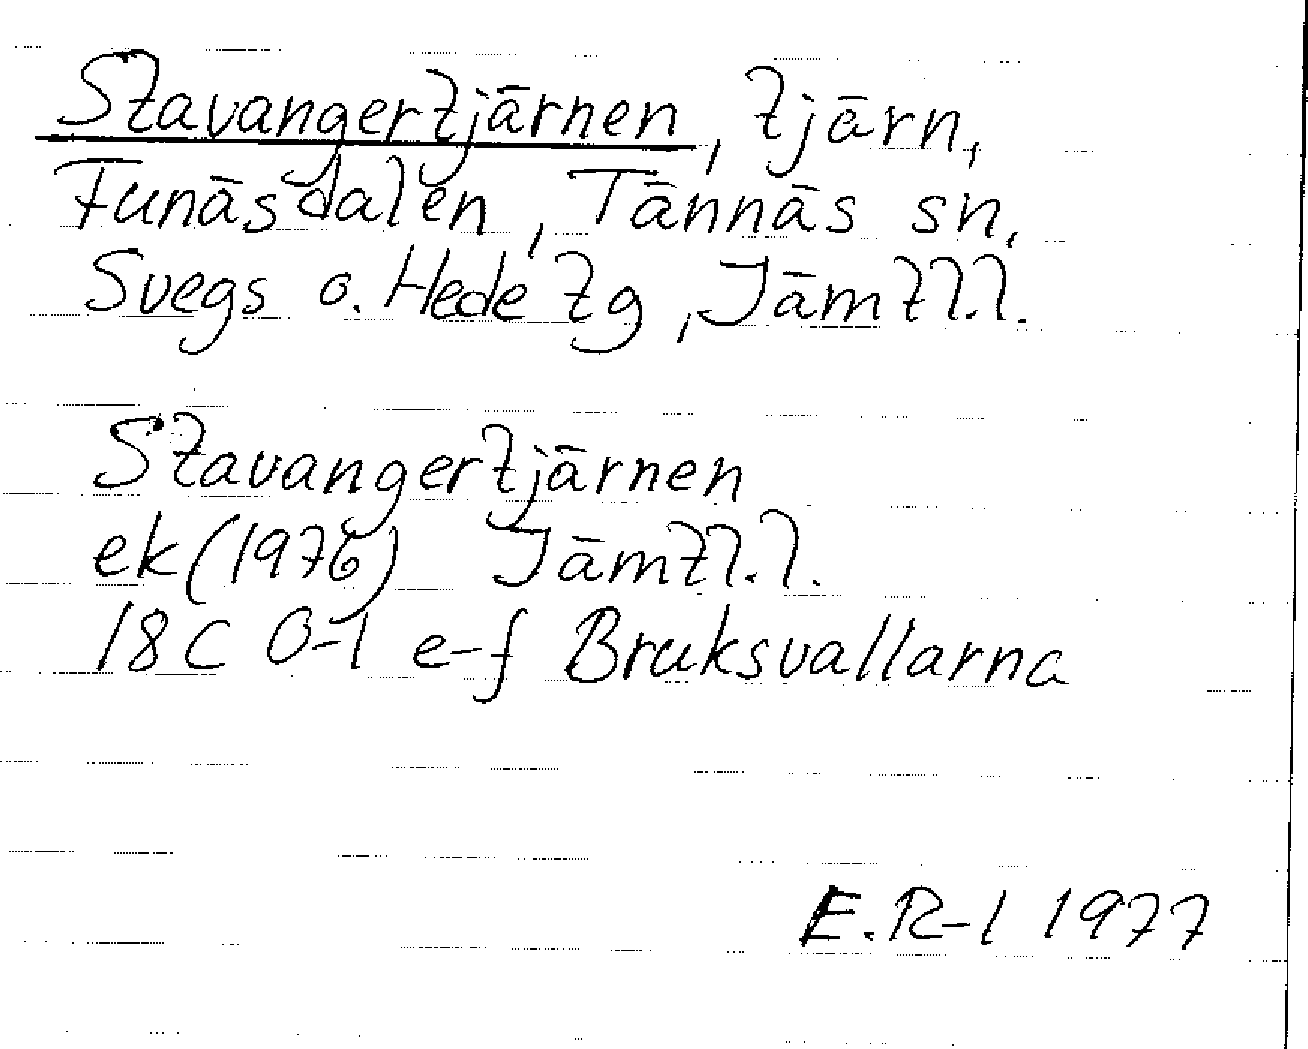 Stavangertjärnen, tjärn,
Funäsdalen, Tännäs sn,
Svegs o. Hede tg, Jämtl.l.
Stavangertjärnen
ek (1976) Jämtl.l.
18C 0-1 e-f Bruksvallarna
E.R-l 1977